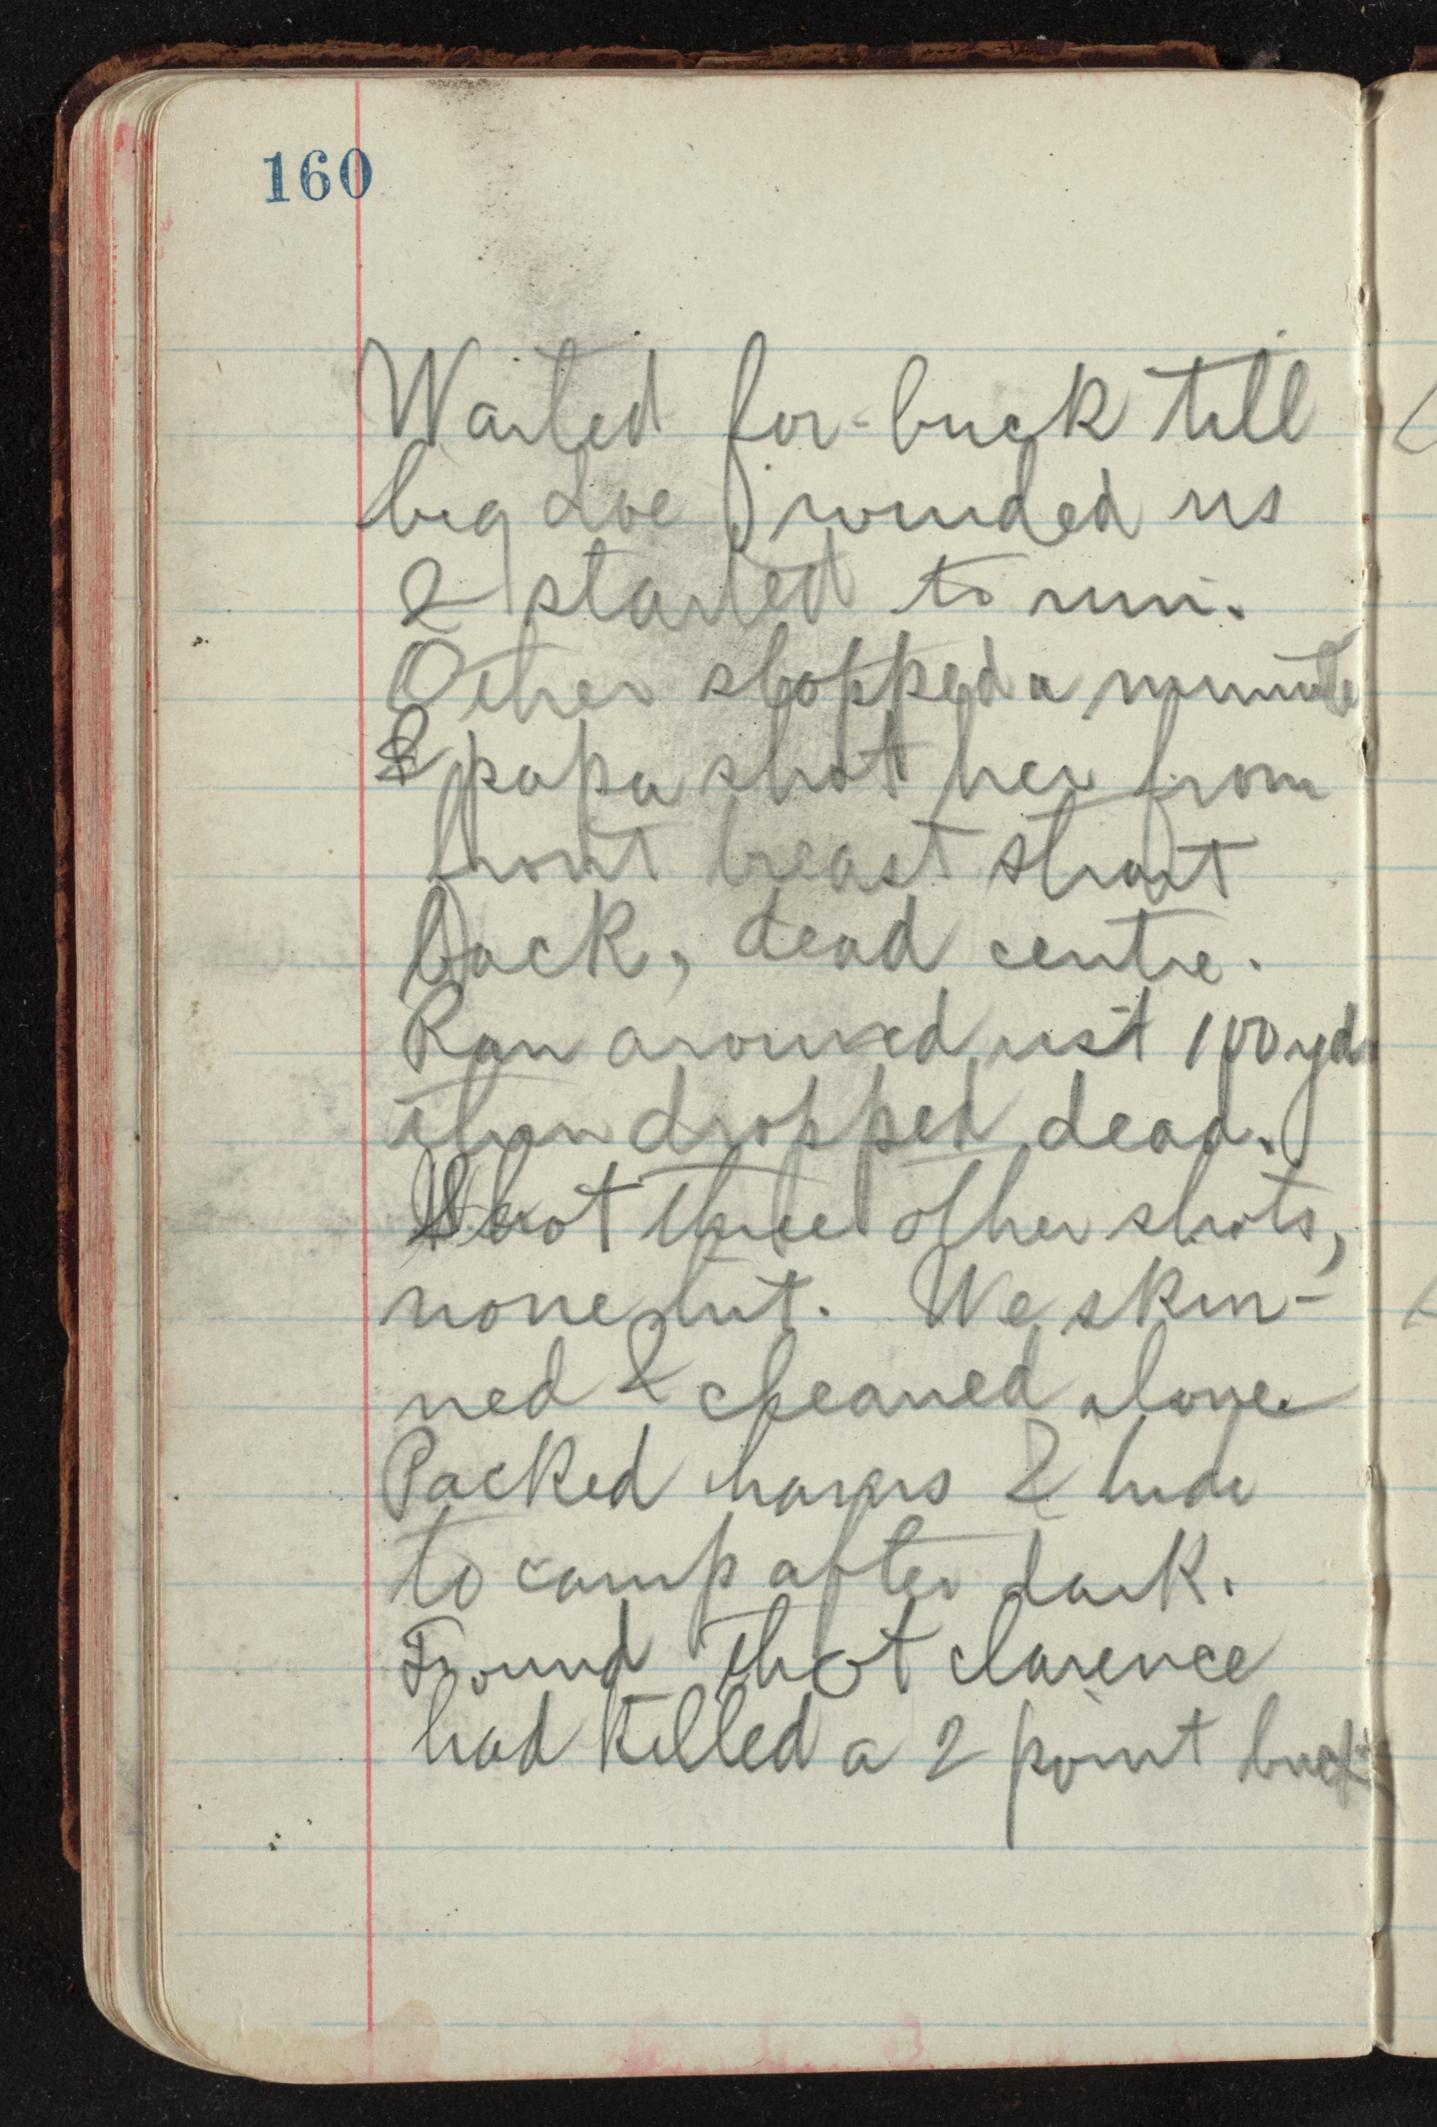 160
Waited for buck till
big doe winded us
& started to run.
Other stopped a minute
& papa shot her from
front breast strait
back, dead centre.
Ran around us 100 yd.
then dropped dead.
Shot three other shots,
none hit. We skin-
ned & cleaned alone.
Packed hams & hide
to camp after dark.
Found that clarence
had killed a 2 point buck